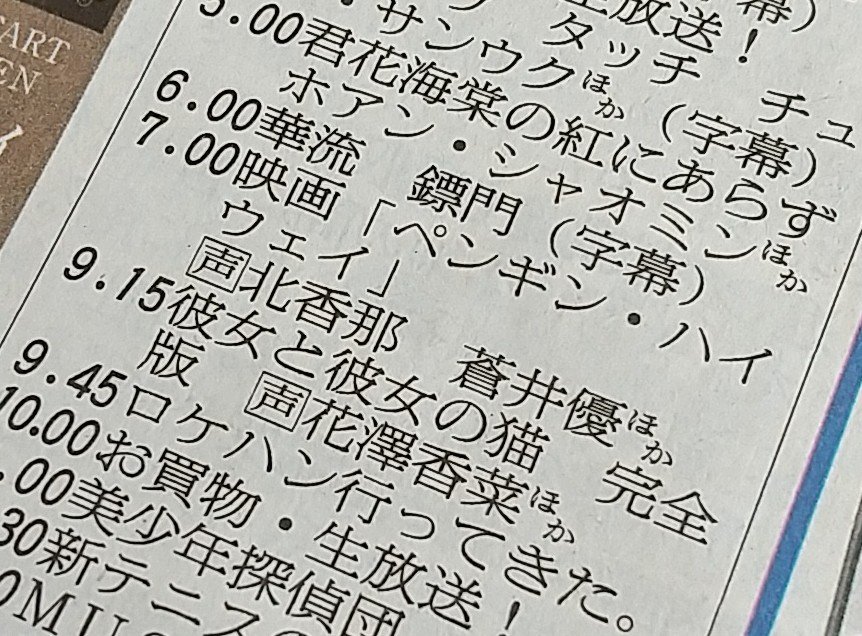 TART
EN
幕）
生放送！
タッチ　チュ
・サンウクほか（字幕）
5.00君花海棠の紅にあらず
ホアン・シャオミンほか
6.00華流　鏢門（字幕）
7.00映画「ペンギン・ハイ
ウェイ」
声北香那　蒼井優ほか
9.15彼女と彼女の猫　完全
版　声花澤香菜ほか
9.45ロケハン行ってきた。
10.00お買物・生放送！
.00美少年探偵団
30新テニスの
0MU